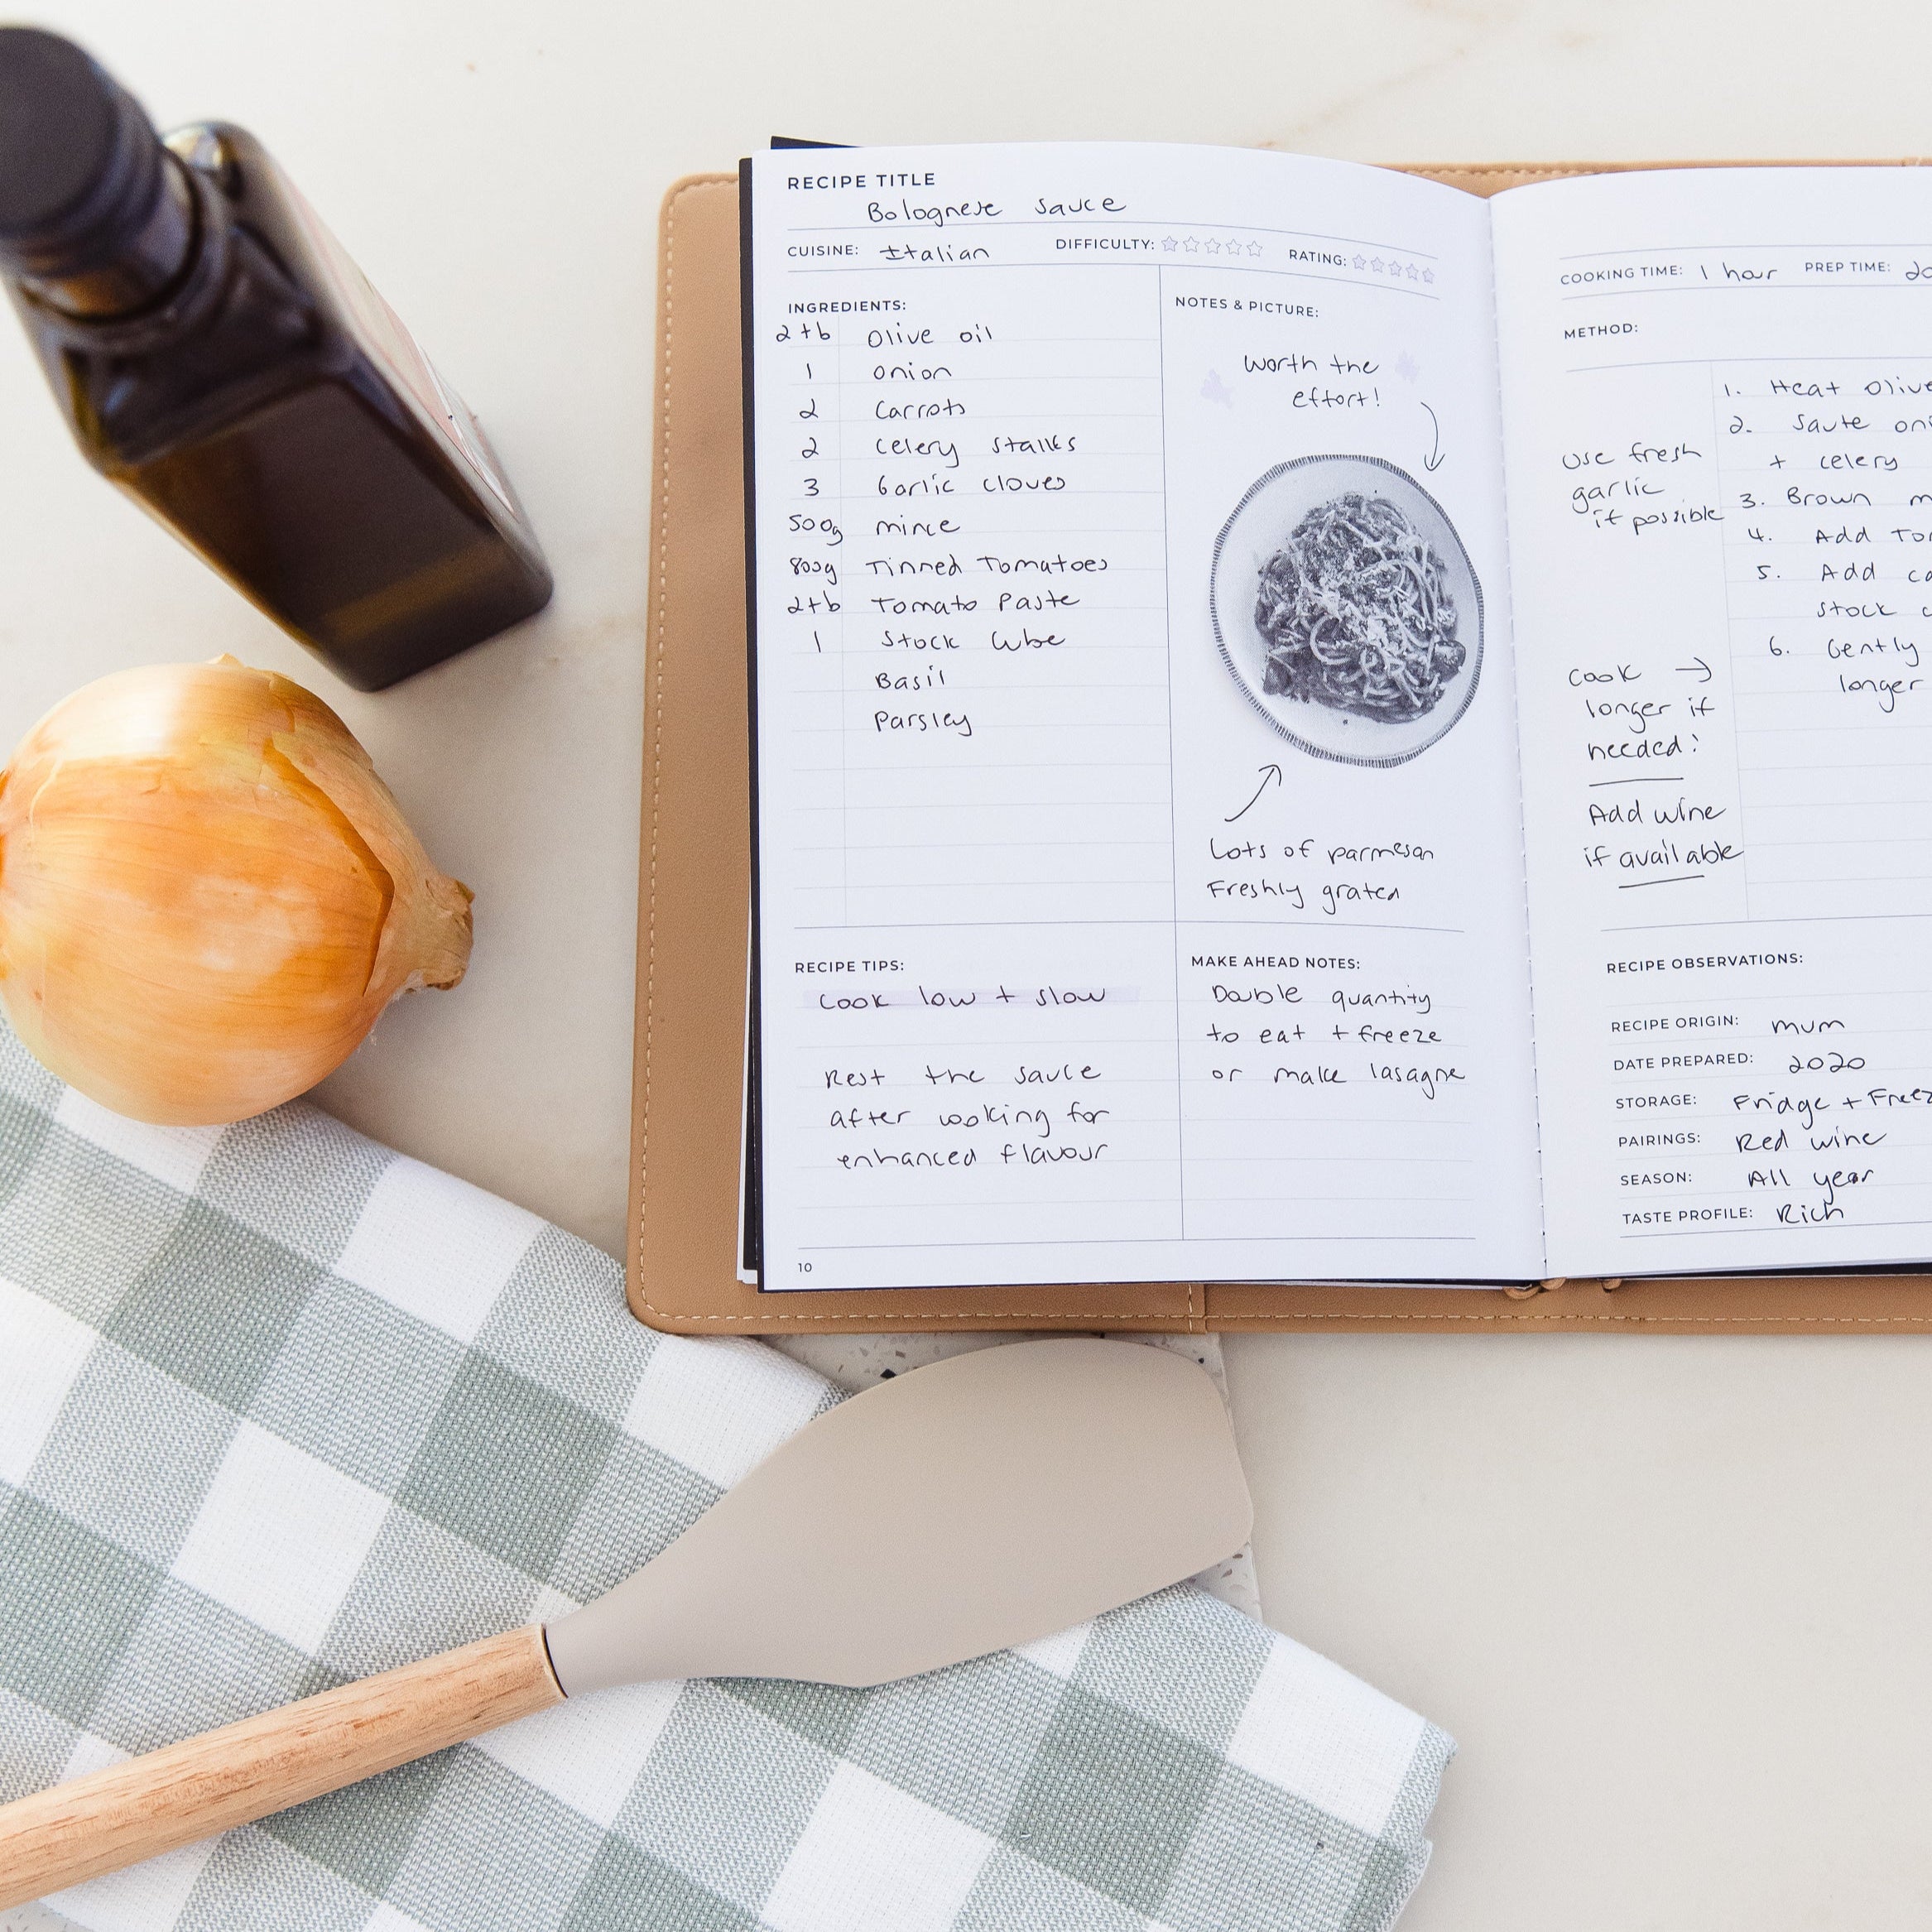 RECIPE TITLE
Bolognese sauce
CUISINE: Italian DIFFICULTY: RATING:
INGREDIENTS:
2 tb Olive oil
1 onion
2 Carrots
2 celery stalks
3 Garlic cloves
500g mince
800g Tinned Tomatoes
2tb Tomato Paste
1 Stock Cube
Basil
Parsley
NOTES & PICTURE:
Worth the
effort!
Lots of parmesan
Freshly grated
RECIPE TIPS:
Cook low + slow
Rest the sauce
after cooking for
enhanced flavour
MAKE AHEAD NOTES:
Double quantity
to eat + freeze
or make lasagne
10
COOKING TIME: 1 hour PREP TIME:
METHOD:
1. Heat Olive
2. Saute
+ celery
3. Brown
4. Add
5. Add
stock
6. Gently
longer
use fresh
garlic
if possible
Cook →
longer if
needed!
Add wine
if available
RECIPE OBSERVATIONS:
RECIPE ORIGIN: mum
DATE PREPARED: 2020
STORAGE: Fridge +
PAIRINGS: Red wine
SEASON: All year
TASTE PROFILE: Rich